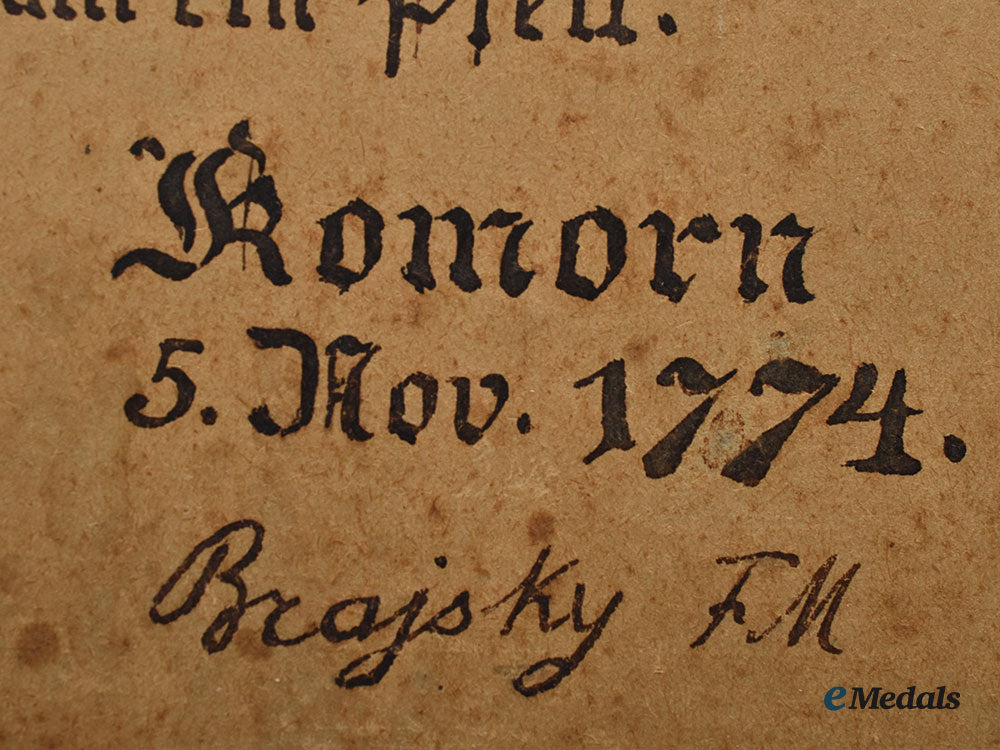 ein Pfeil.
Komorn
5. Nov. 1774.
Brajsky FM
eMedals